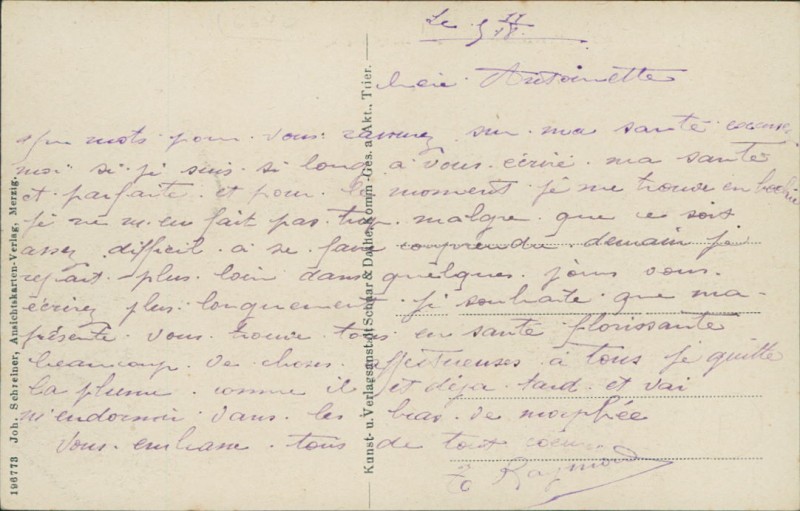 Le 5 II 18.
Antoinette
que mots pour vous rassurez sur ma santé excuse
moi si je suis si long à vous écrire ma santé
et parfaite et pour le moment je me trouve en bochie
je ne m'en fait pas trop malgre que ce soit
assez difficil a se faire comprendre demain je
repart plus loin dans quelques jours vous
écrirez plus longuement je souhaite que ma
présente vous trouve tous en santé florissante
beaucoup de choses affectueuses à tous je quitte
la plume comme il et déja tard et vai
m'endormir dans les bras de morphée
Vous embrasse tous de tout coeur
Raymond
196773 Joh. Schreiner, Ansichtskarten-Verlag, Merzig.
Kunst- u. Verlagsanstalt Schaar & Dathe, Komm.-Ges. a. Akt., Trier.